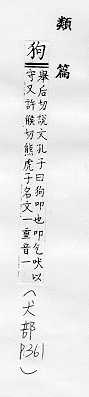 類篇
狗
舉后切說文孔子曰狗叩也叩气吠以
守又許候切熊虎子名文一重音一
(犬部P361)